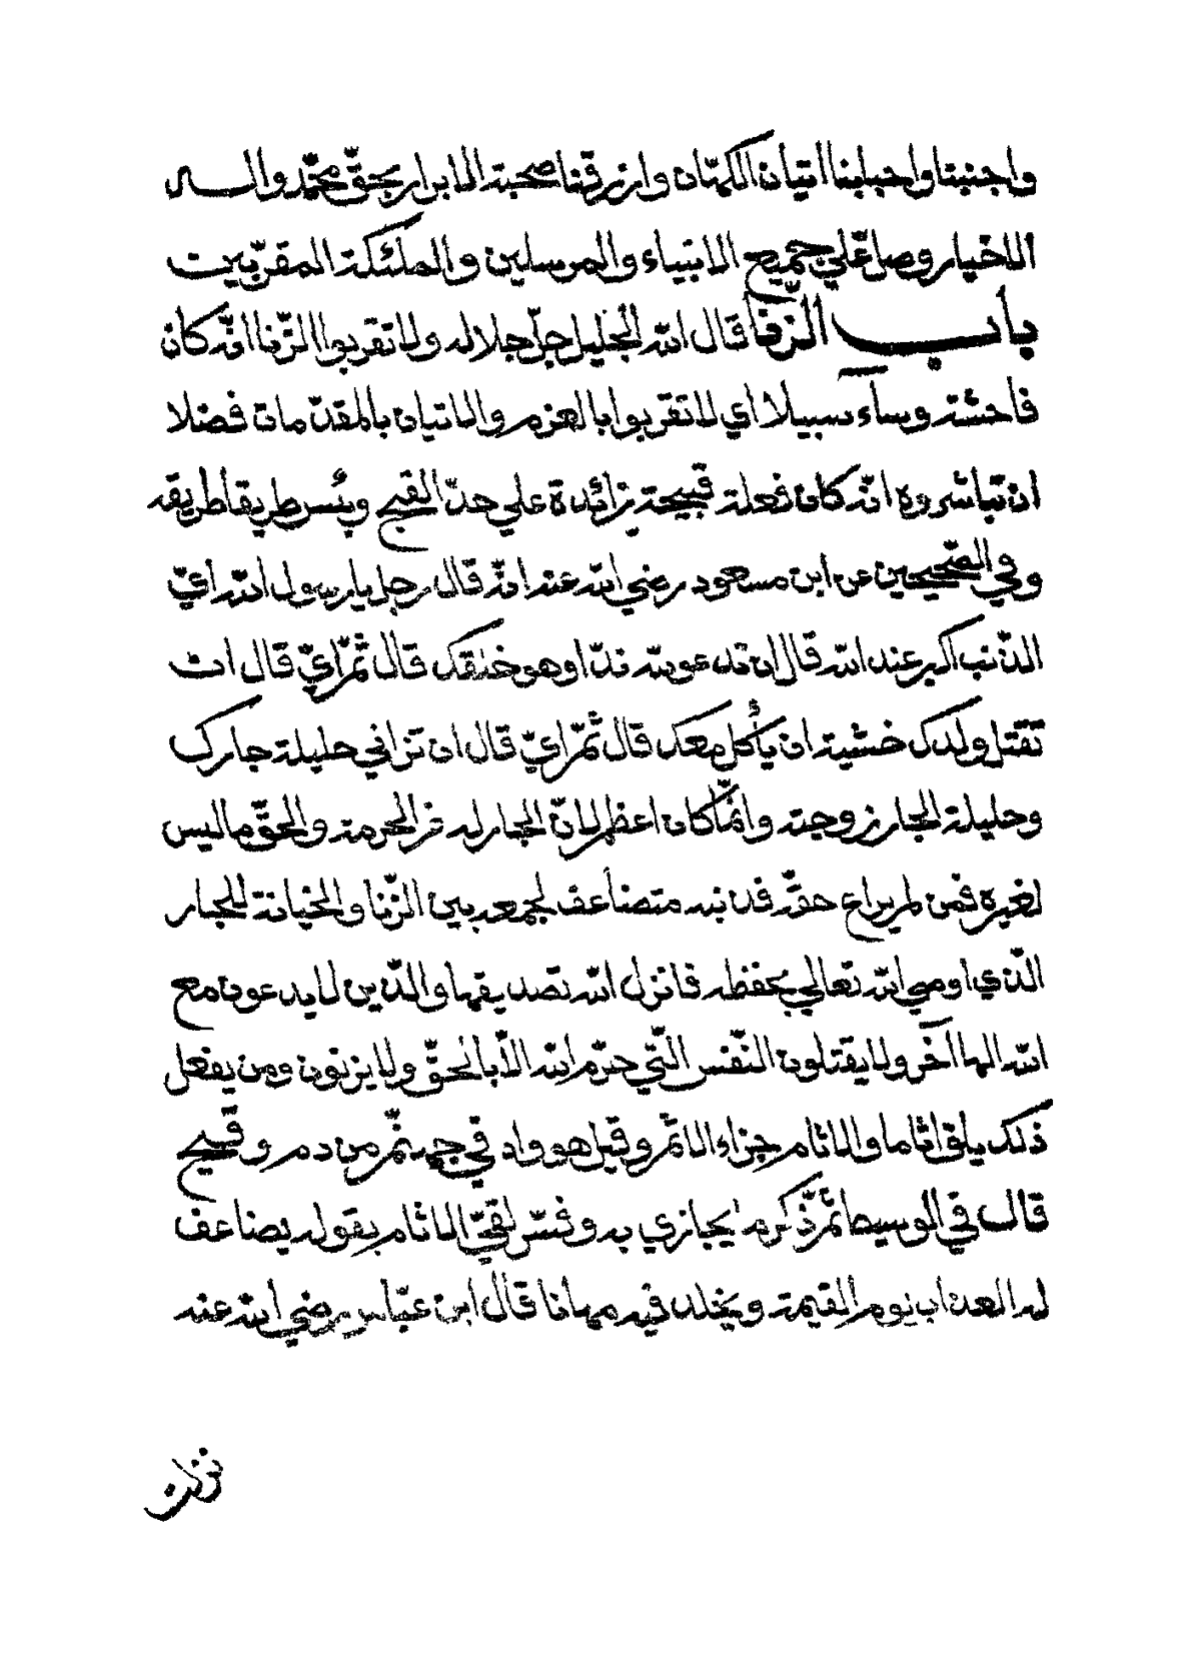 واجنبنا واحبابنا اتيان الكهّان وارزقنا صحبة الابرار بحقّ محمّد واله
الاخيار وصل علي جميع الانبياء والمرسلين والملئكة المقرّبين
باب الزّنا قال الله الجليل جلّ جلاله ولا تقربوا الزّنا انّه كان
فاحشة وسآء سبيلا اي لا تقربوا بالعزم والاتيان بالمقدّمات فضلا
ان تباشروه انّه كان فعلة قبيحة زائدة علي حدّ القبح وبئس طريقا طريقه
وفي الصّحيحين عن ابن مسعود رضي الله عنه انّه قال رجل يا رسول الله ايّ
الذّنب اكبر عند الله قال ان تدعو لله ندّا وهو خلقك قال ثمّ ايّ قال ان
تقتل ولدك خشية ان يأكل معك قال ثمّ ايّ قال ان تزاني حليلة جارك
وحليلة الجار زوجته وانّما كان اعظم لانّ الجار له من الحرمة والحقّ ما ليس
لغيره فمن لم يراع حقّه فذنبه متضاعف لجمعه بين الزّنا والخيانة للجار
الّذي اوصي الله تعالي بحفظه فانزل الله تصديقها والّذين لا يدعون مع
الله الها آخر ولا يقتلون النّفس الّتي حرّم الله الّا بالحقّ ولا يزنون ومن يفعل
ذلك يلق اثاما والاثام جزاء الاثم وقيل هو واد في جهنّم من دم وقيح
قال في الوسيط ثمّ ذكر ما يجازي به وفسّر لقيّ الاثام بقوله يضاعف
له العذاب يوم القيمة ويخلد فيه مهانا قال ابن عبّاس رضي الله عنه